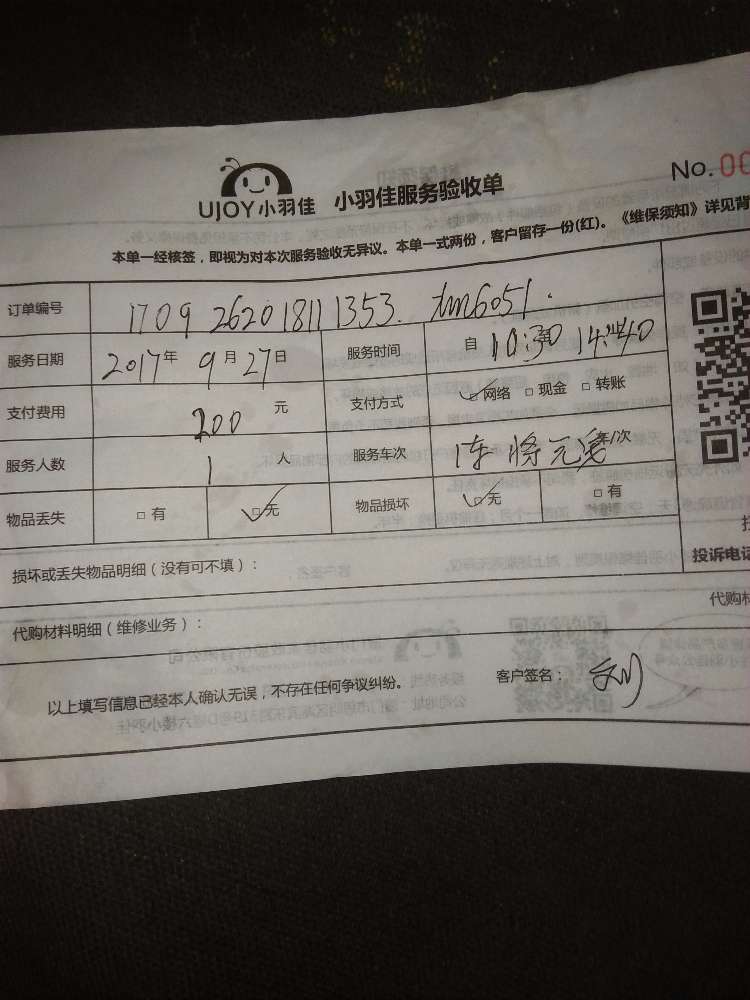 UJOY小羽佳 小羽佳服务验收单 No.00
本单一经核签，即视为对本次服务验收无异议。本单一式两份，客户留存一份(红)。《维保须知》详见背
订单编号 170926201811353. dm6051.
服务日期 2017年 9月27日 服务时间 自 10:30 至 14:40
支付费用 200 元 支付方式 □网络 □现金 □转账
服务人数 1 人 服务车次 车/次
物品丢失 □有 □无 物品损坏 □无 □有
投诉电话
损坏或丢失物品明细（没有可不填）：
代购材
代购材料明细（维修业务）：
以上填写信息已经本人确认无误，不存在任何争议纠纷。 客户签名：